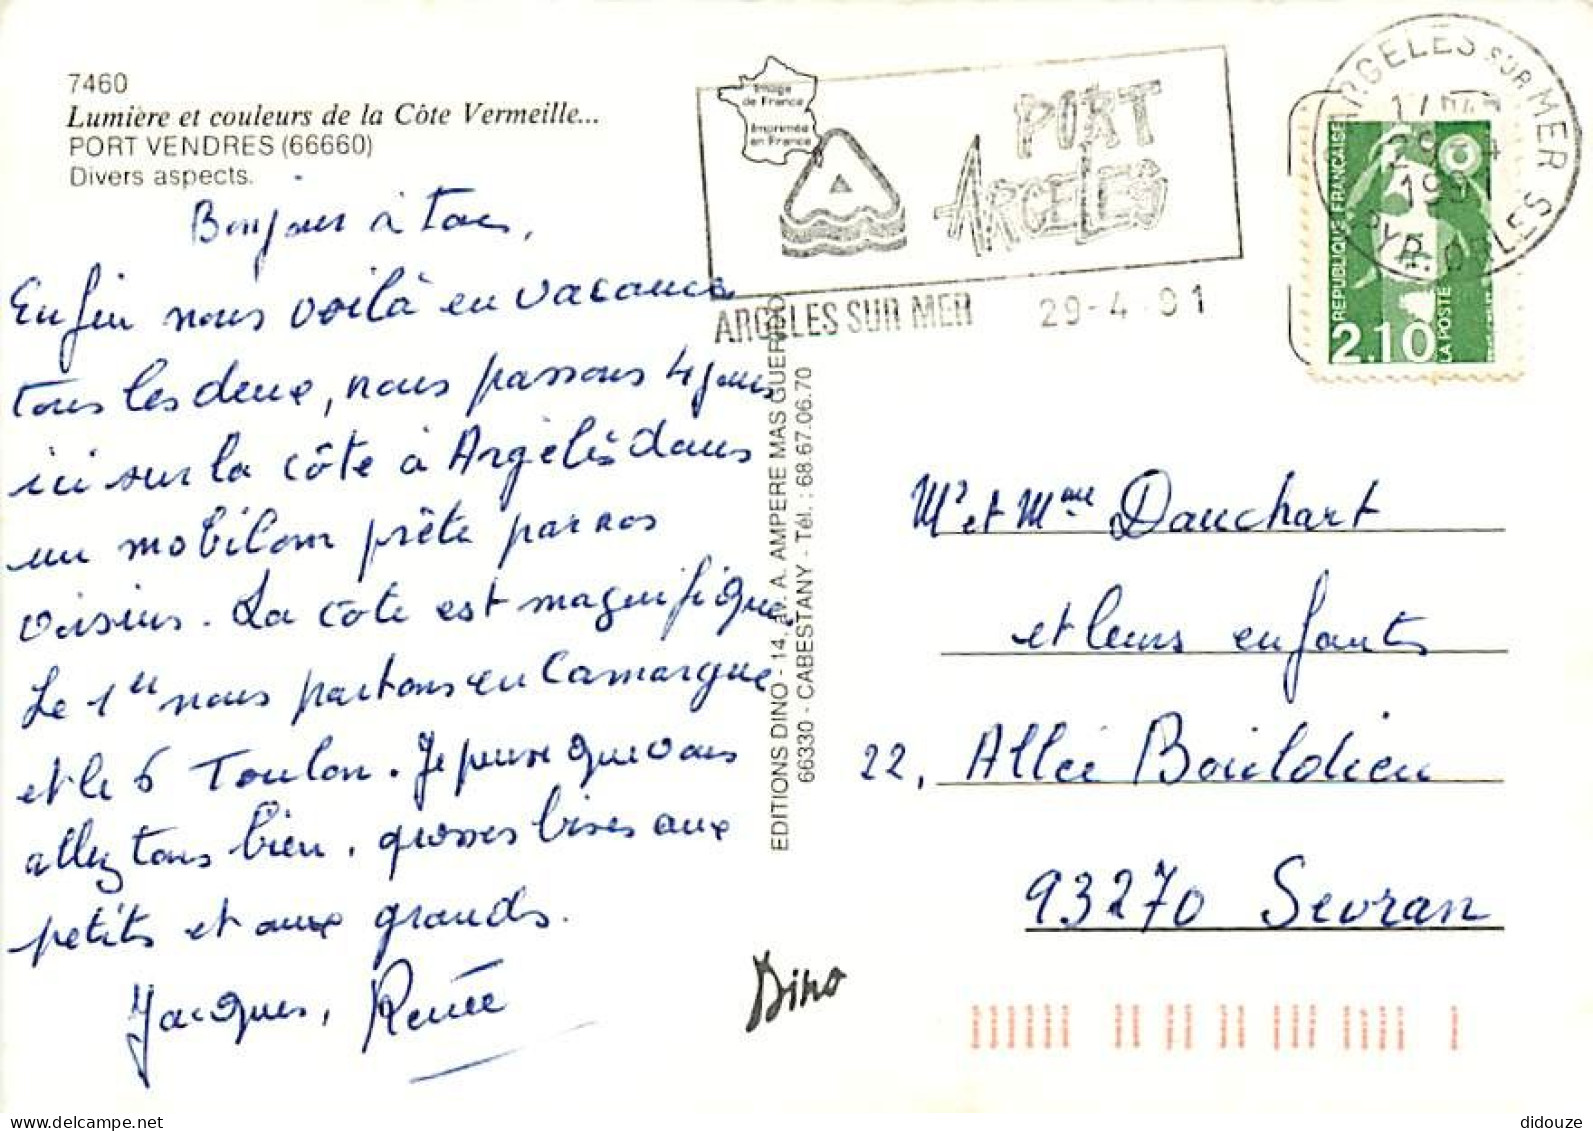 7460
Lumière et couleurs de la Côte Vermeille...
PORT VENDRES (66660)
Divers aspects.
Image
de France
Imprimée
en France
PORT
ARGELÈS
ARGELES SUR MER 29-4-91
ARGELES SUR MER
29-4
1991
PYR. ORLES
REPUBLIQUE FRANÇAISE
LA POSTE
2,10
Bonjour à tous,
Enfin nous voilà en vacance
tous les deux, nous passons 4 jours
ici sur la côte à Argelès dans
un mobilom prête par nos
voisins. La côte est magnifique,
Le 1er nous partons en Camargue
et le 6 Toulon. Je pense que vous
allez tous bien. grosses bises aux
petits et aux grands.
Jacques, Renée
EDITIONS DINO - 14, av. A. AMPERE MAS GUERIDO
66330 - CABESTANY - Tél. : 68.67.06.70
Dino
Mr et Mme Dauchart
et leurs enfants
22, Allée Boieldieu
93270 Sevran
delcampe.net
didouze